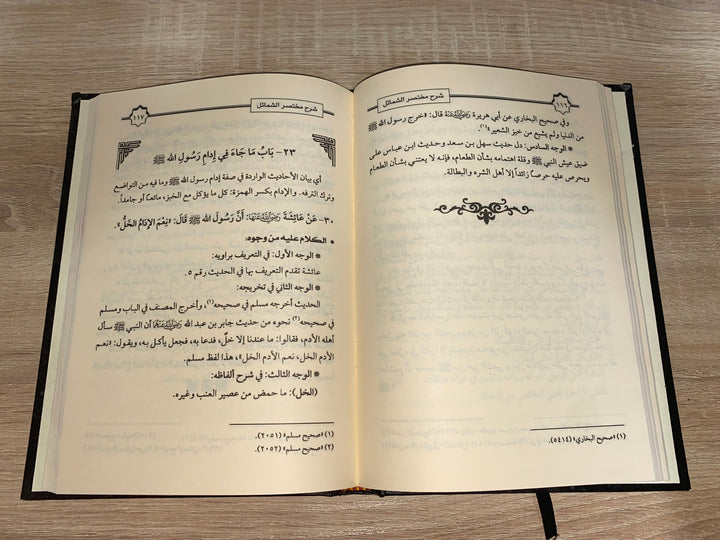 ١١٦
شرح مختصر الشمائل
وفي صحيح البخاري عن أبي هريرة رضي الله عنه قال: «خرج رسول الله ﷺ
من الدنيا ولم يشبع من خبز الشعير»(١).
* الوجه السادس: دل حديث سهل بن سعد وحديث ابن عباس على
ضيق عيش النبي ﷺ وقلة اهتمامه بشأن الطعام، فإنه لا يعتني بشأن الطعام
ويحرص عليه حرصاً زائداً إلا أهل الشره والبطالة.
(١) «صحيح البخاري» (٥٤١٤).
شرح مختصر الشمائل
١١٧
٢٣- بَابُ مَا جَاءَ فِي إِدَامِ رَسُولِ اللهِ ﷺ
أي بيان الأحاديث الواردة في صفة إدام رسول الله ﷺ وما فيه من التواضع
وترك الترفه. والإدام بكسر الهمزة: كل ما يؤكل مع الخبز، مائعاً أو جامداً.
٣٠- عَنْ عَائِشَةَ رضي الله عنها: أَنَّ رَسُولَ اللهِ ﷺ قَالَ: «نِعْمَ الإِدَامُ الخَلُّ».
* الكلام عليه من وجوه:
* الوجه الأول: في التعريف براويه:
عائشة تقدم التعريف بها في الحديث رقم ٥.
* الوجه الثاني في تخريجه:
الحديث أخرجه مسلم في صحيحه(١)، وأخرج المصنف في الباب ومسلم
في صحيحه(٢) نحوه من حديث جابر بن عبد الله رضي الله عنهما أن النبي ﷺ سأل
أهله الأدم، فقالوا: ما عندنا إلا خلٌّ، فدعا به، فجعل يأكل به، ويقول: «نعم
الأدم الخل، نعم الأدم الخل»، هذا لفظ مسلم.
* الوجه الثالث: في شرح ألفاظه:
(الخل): ما حمض من عصير العنب وغيره.
(١) «صحيح مسلم» (٢٠٥١).
(٢) «صحيح مسلم» (٢٠٥٢).